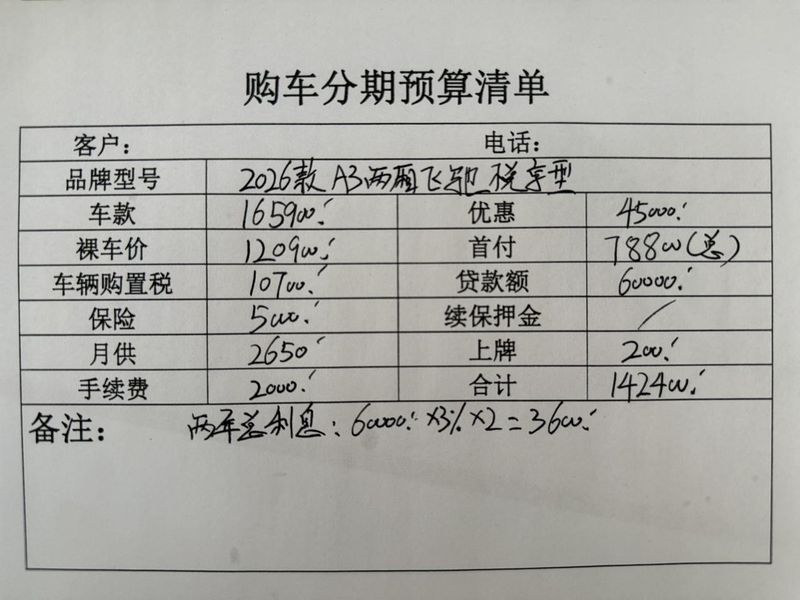 购车分期预算清单
客户： 电话：
品牌型号 2026款 A3两厢飞驰 悦享型
车款 165900. 优惠 45000.
裸车价 120900. 首付 78800(总)
车辆购置税 10700. 贷款额 60000.
保险 5000. 续保押金 /
月供 2650 上牌 200.
手续费 2000. 合计 142400.
备注： 两年总利息：60000.×3%×2=3600.